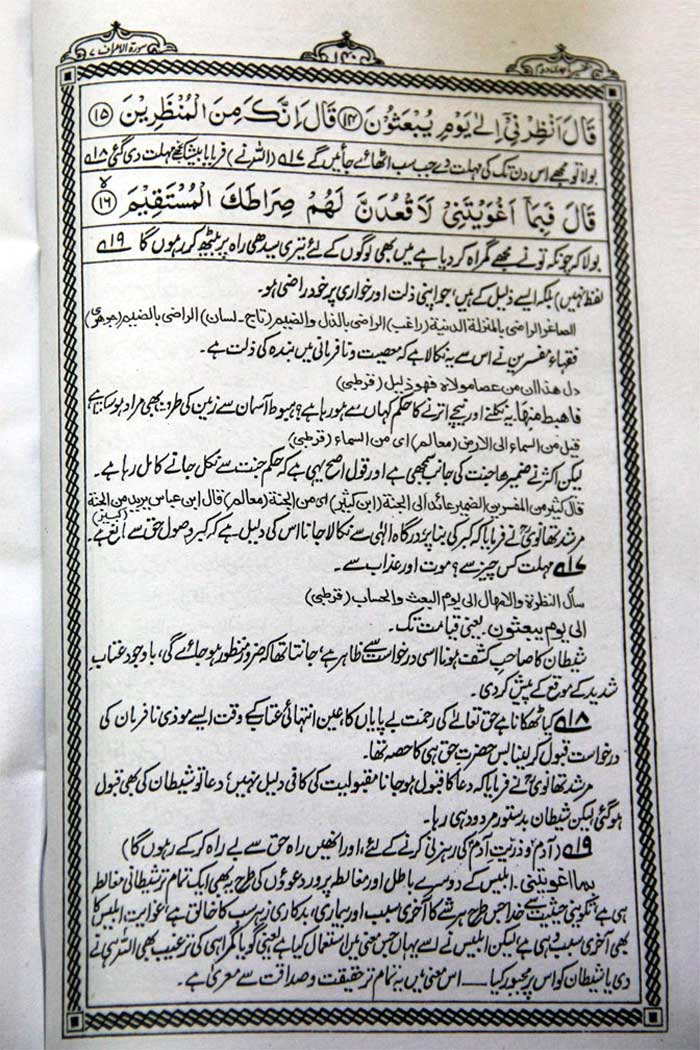 سورة الاعراف ۷
۱۴۰
قَالَ اَنْظِرْنِیْۤ اِلٰی یَوْمِ یُبْعَثُوْنَ ﴿۱۴﴾ قَالَ اِنَّکَ مِنَ الْمُنْظَرِیْنَ ﴿۱۵﴾
بولا تو مجھے اس دن تک کی مہلت دے جب سب اٹھائے جائیں گے ۱۷ (اللہ نے) فرمایا بیشک تجھے مہلت دی گئی ۱۸
قَالَ فَبِمَاۤ اَغْوَیْتَنِیْ لَاَقْعُدَنَّ لَهُمْ صِرَاطَکَ الْمُسْتَقِیْمَ ﴿۱۶﴾
بولا کہ چونکہ تو نے مجھے گمراہ کر دیا ہے میں بھی لوگوں کے لئے تیری سیدھی راہ پر بیٹھ کر رہوں گا ۱۹
لفظ نہیں) بلکہ ایسے ذلیل کے ہیں، جو اپنی ذلت اور خواری پر خود راضی ہو۔
الصاغر الراضی بالمنزلة الدنیة (راغب) الراضی بالذل والضیم (تاج۔ لسان) الراضی بالضیم (جوھری)
فقہاء مفسرین نے اس سے یہ نکالا ہے کہ معصیت و نافرمانی میں بندہ کی ذلت ہے۔
دل ھذا ان من عصا مولاہ فھو ذلیل (قرطبی)
فاھبط منھا۔ یہ نکلنے اور نیچے اترنے کا حکم کہاں سے ہو رہا ہے؟ ہبوط آسمان سے زمین کی طرف بھی مراد ہو سکتا ہے
قیل من السماء الی الارض (معالم) ای من السماء (قرطبی)
لیکن اکثر نے ضمیر ھا جنت کی جانب سمجھی ہے اور قول اصح یہی ہے کہ حکم جنت سے نکل جانے کا مل رہا ہے۔
قال کثیر من المفسرین الضمیر عائد الی الجنة (ابن کثیر) ای من الجنة (معالم) قال ابن عباس یرید من الجنة (کبیر)
مرشد تھانویؒ نے فرمایا کہ کبر کی بنا پر درگاہ الٰہی سے نکالا جانا اس کی دلیل ہے کہ کبر وصول حق سے مانع ہے۔
۱۷ مہلت کس چیز سے؟ موت اور عذاب سے۔
سأل النظرة والامهال الی یوم البعث والحساب (قرطبی)
الی یوم یبعثون۔ یعنی قیامت تک۔
شیطان کا صاحب کشف ہونا اسی درخواست سے ظاہر ہے، جانتا تھا کہ ضرور منظور ہو جائے گی، باوجود عتابِ
شدید کے موقع کے پیش کر دی۔
۱۸ کیا ٹھکانا ہے حق تعالےٰ کی رحمت بے پایاں کا، عین انتہائی عتاب کے وقت ایسے موذی نافرمان کی
درخواست قبول کر لینا بس حضرتِ حق ہی کا حصہ تھا۔
مرشد تھانویؒ نے فرمایا کہ دعا کا قبول ہو جانا مقبولیت کی کافی دلیل نہیں، دعا تو شیطان کی بھی قبول
ہو گئی لیکن شیطان بدستور مردود ہی رہا۔
۱۹ (آدم و ذریتِ آدم کی رہزنی کرنے کے لئے، اور انھیں راہ حق سے بے راہ کر کے رہوں گا)
بما اغویتنی۔ ابلیس کے دوسرے باطل اور مغالطہ پرور دعوؤں کی طرح یہ بھی ایک تمام تر شیطانی مغالطہ
ہی ہے، تکوینی حیثیت سے خدا جس طرح ہر شے کا آخری سبب اور بیماری، بدکاری زہر سب کا خالق ہے، غوایت ابلیس کا
بھی آخری سبب وہی ہے لیکن ابلیس نے اسے یہاں جس معنی میں استعمال کیا ہے یعنی گویا گمراہی کی ترغیب بھی اللہ ہی نے
دی یا شیطان کو اس پر مجبور کیا ــــ اس معنی میں یہ تمام تر حقیقت و صداقت سے معریٰ ہے۔